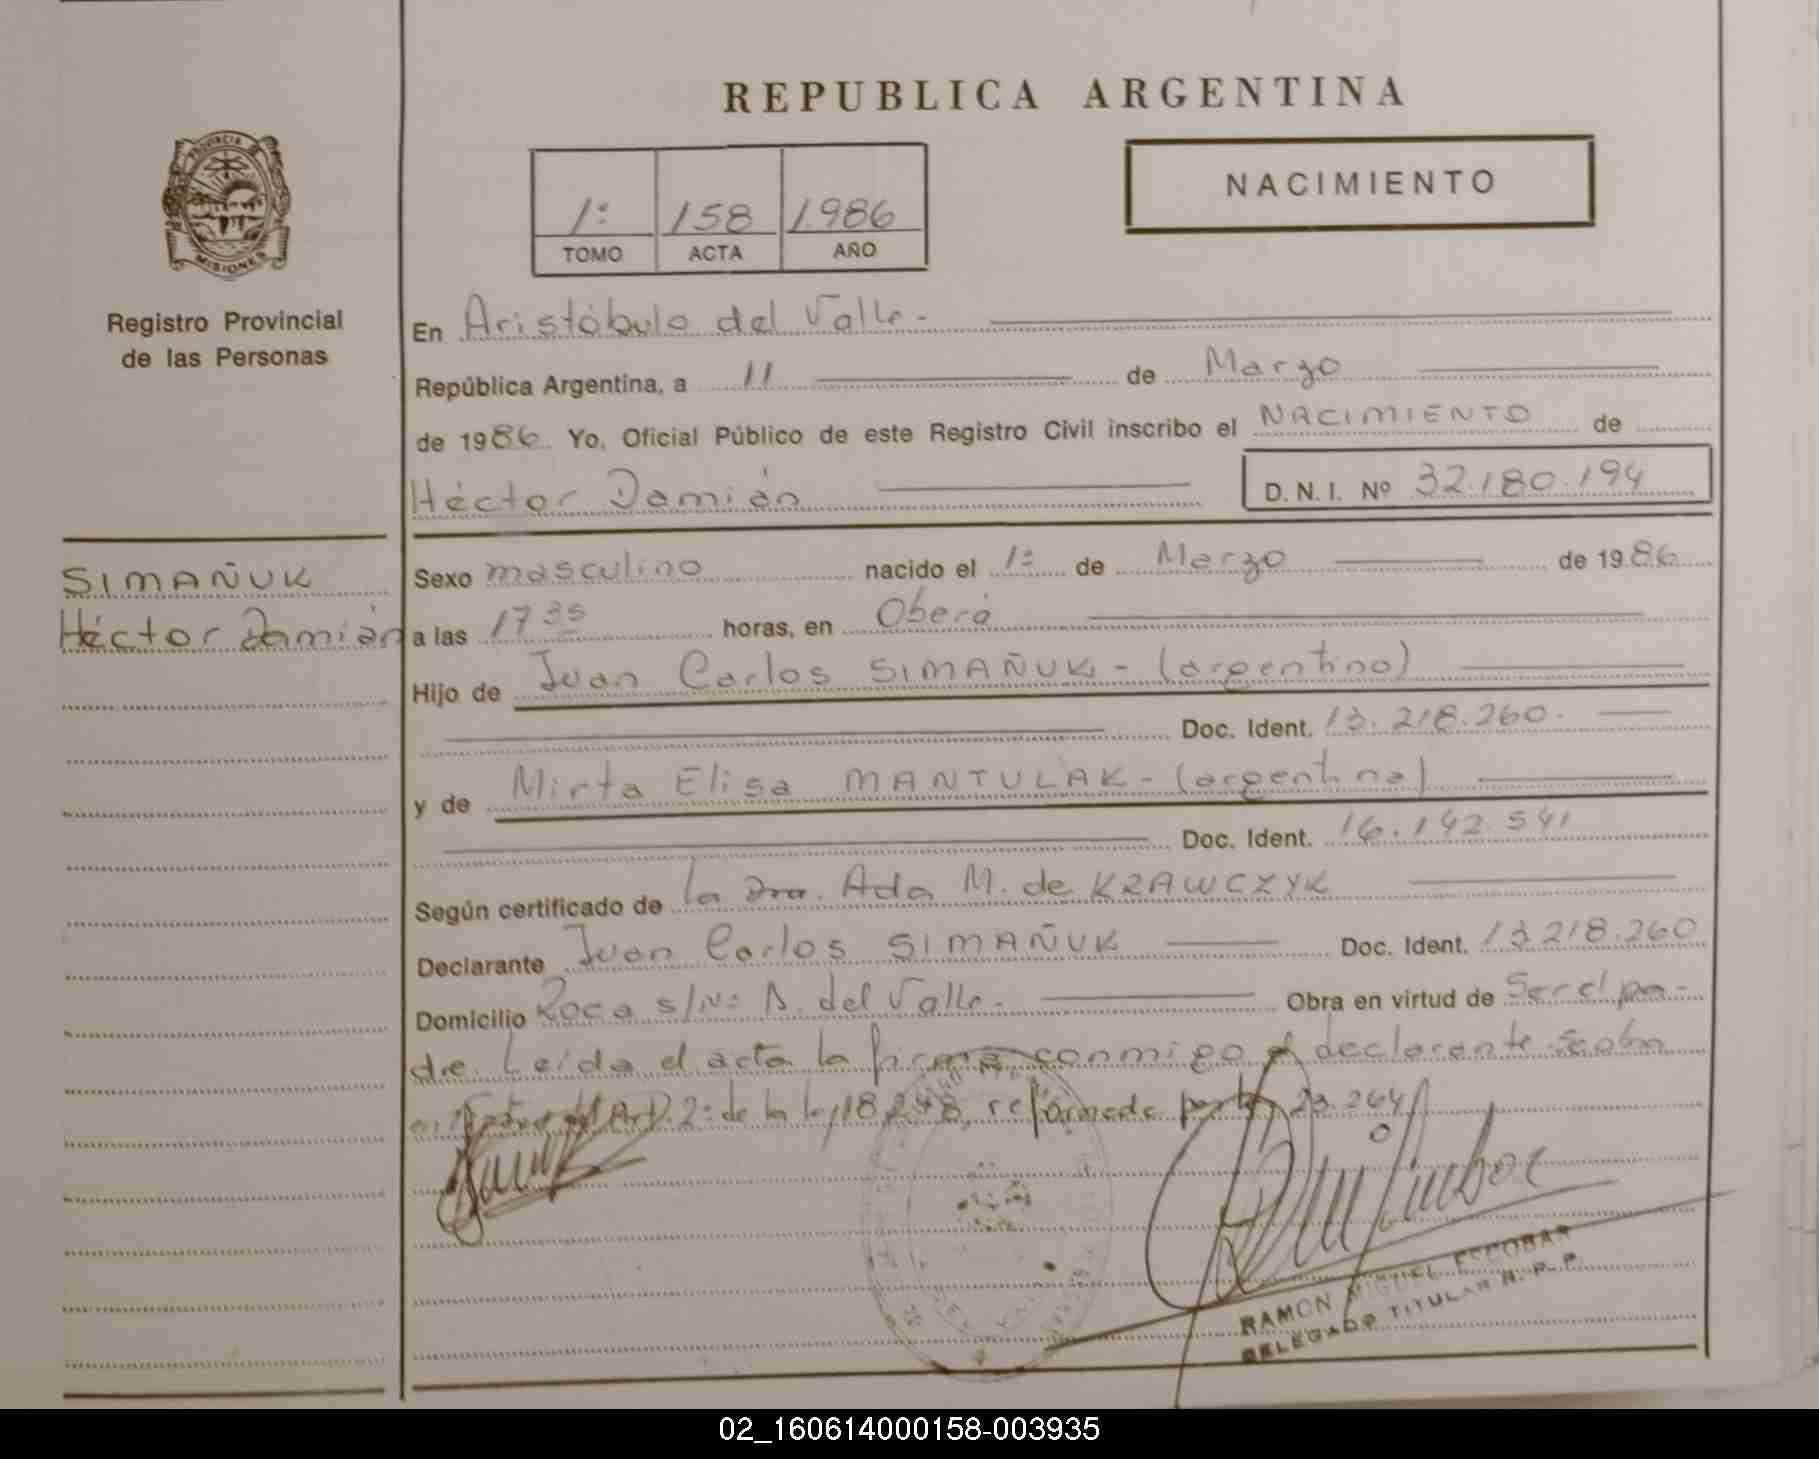 REPUBLICA ARGENTINA
PROVINCIA
MISIONES
Registro Provincial
de las Personas
1º 158 1.986
TOMO ACTA AÑO
NACIMIENTO
En Aristóbulo del Valle.-
República Argentina, a 11 de Marzo
de 1986. Yo, Oficial Público de este Registro Civil inscribo el NACIMIENTO de
Héctor Damián D.N.I. Nº 32.180.194
SIMAÑUK
Héctor Damián
Sexo masculino nacido el 1º de Marzo de 1986
a las 17 35 horas, en Oberá
Hijo de Juan Carlos SIMAÑUK - (argentino)
Doc. Ident. 13.218.260.
y de Mirta Elisa MANTULAK - (argentina)
Doc. Ident. 16.142.541
Según certificado de la Dra. Ada M. de KRAWCZYK
Declarante Juan Carlos SIMAÑUK Doc. Ident. 13.218.260
Domicilio Roca s/Nº A. del Valle.- Obra en virtud de Ser el pa-
dre. Leída el acta la firma conmigo el declarante.
del Art. 2º de la ley 18.248, reformada por 23.264
RAMON MIGUEL ESCOBAR
DELEGADO TITULAR R.P.P.
02_160614000158-003935